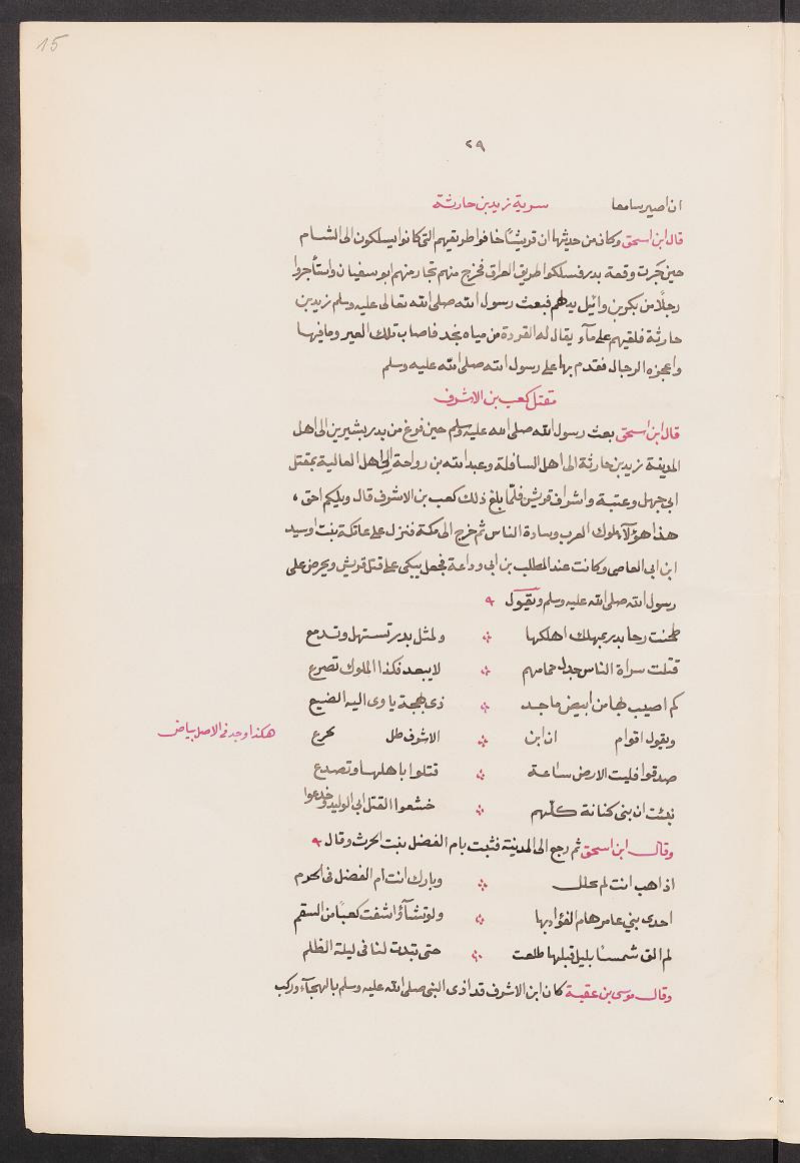 15
٢٩
ان اصير سامعا سرية زيد بن حارثة
قال ابن اسحق وكان من حديثها ان قريشًا خافوا طريقهم التى كانوا يسلكون الى الشام
حين جَرت وقعة بدر فسلكوا طريق العراق فخرج منهم تجار منهم ابو سفيان واستأجروا
رجلًا من بكر بن وائيل يدلهم فبعث رسول الله صلى الله تعالى عليه وسلم زيد بن
حارثة فلقيهم على مآء يقال له القردة من مياه نجد فاصاب تلك العير وما فيها
واعجزه الرجال فقدم بها على رسول الله صلى الله عليه وسلم
مقتل كعب بن الاشرف
قال ابن اسحق بعث رسول الله صلى الله عليه وسلم حين فرغ من بدر بشيرين الى اهل
المدينة زيد بن حارثة الى اهل السافلة وعبد الله بن رواحة الى اهل العالية بمقتل
ابى جهل وعتبة واشراف قريش فلمّا بلغ ذلك كعب بن الاشرف قال ويليكم احق
هذا هؤلآء ملوك العرب وسادة الناس ثم خرج الى مكة فنزل على عاتكة بنت اوسيد
ابن ابى العاصى وكانت عند المطلب بن ابى وداعة فجعل يبكى على قتل قريش ويحرض على
رسول الله صلى الله عليه وسلم ويقول
طحنت رحا بدر بمهلك اهلكها ولمثل بدر تستهل وتدمع
قتلت سراة الناس حمامهم لا يبعد فكذا الملوك تصرع
كم اصيب لها من ابيض ماجد ذى بهجة ياوى اليه الضيع
ويقول اقوام ان ابن الاشرف ظل
هكذا وجد فى الاصل بياض
صدقوا فليت الارض ساعة قتلوا باهلها وتصدع
نبئت ان بنى كنانة كلّهم خشعوا القتل ابى الوليد وخدعوا
وقال ابن اسحق ثم رجع الى المدينة فثبت بام الفضل بنت الحرث وقال
اذاهب انت لم تحلل وبارك انت ام الفضل فى الحرم
احدى بني عامر هام الفؤاد بها ولو تشآؤ اشفت كعبًا من السقم
لم الق شمسًا بليل قبلها طلعت حتى تبدت لنا فى ليلة الظلم
وقال موسى بن عقبة كان ابن الاشرف قد اذى النبى صلى الله عليه وسلم بالهجآء وركب